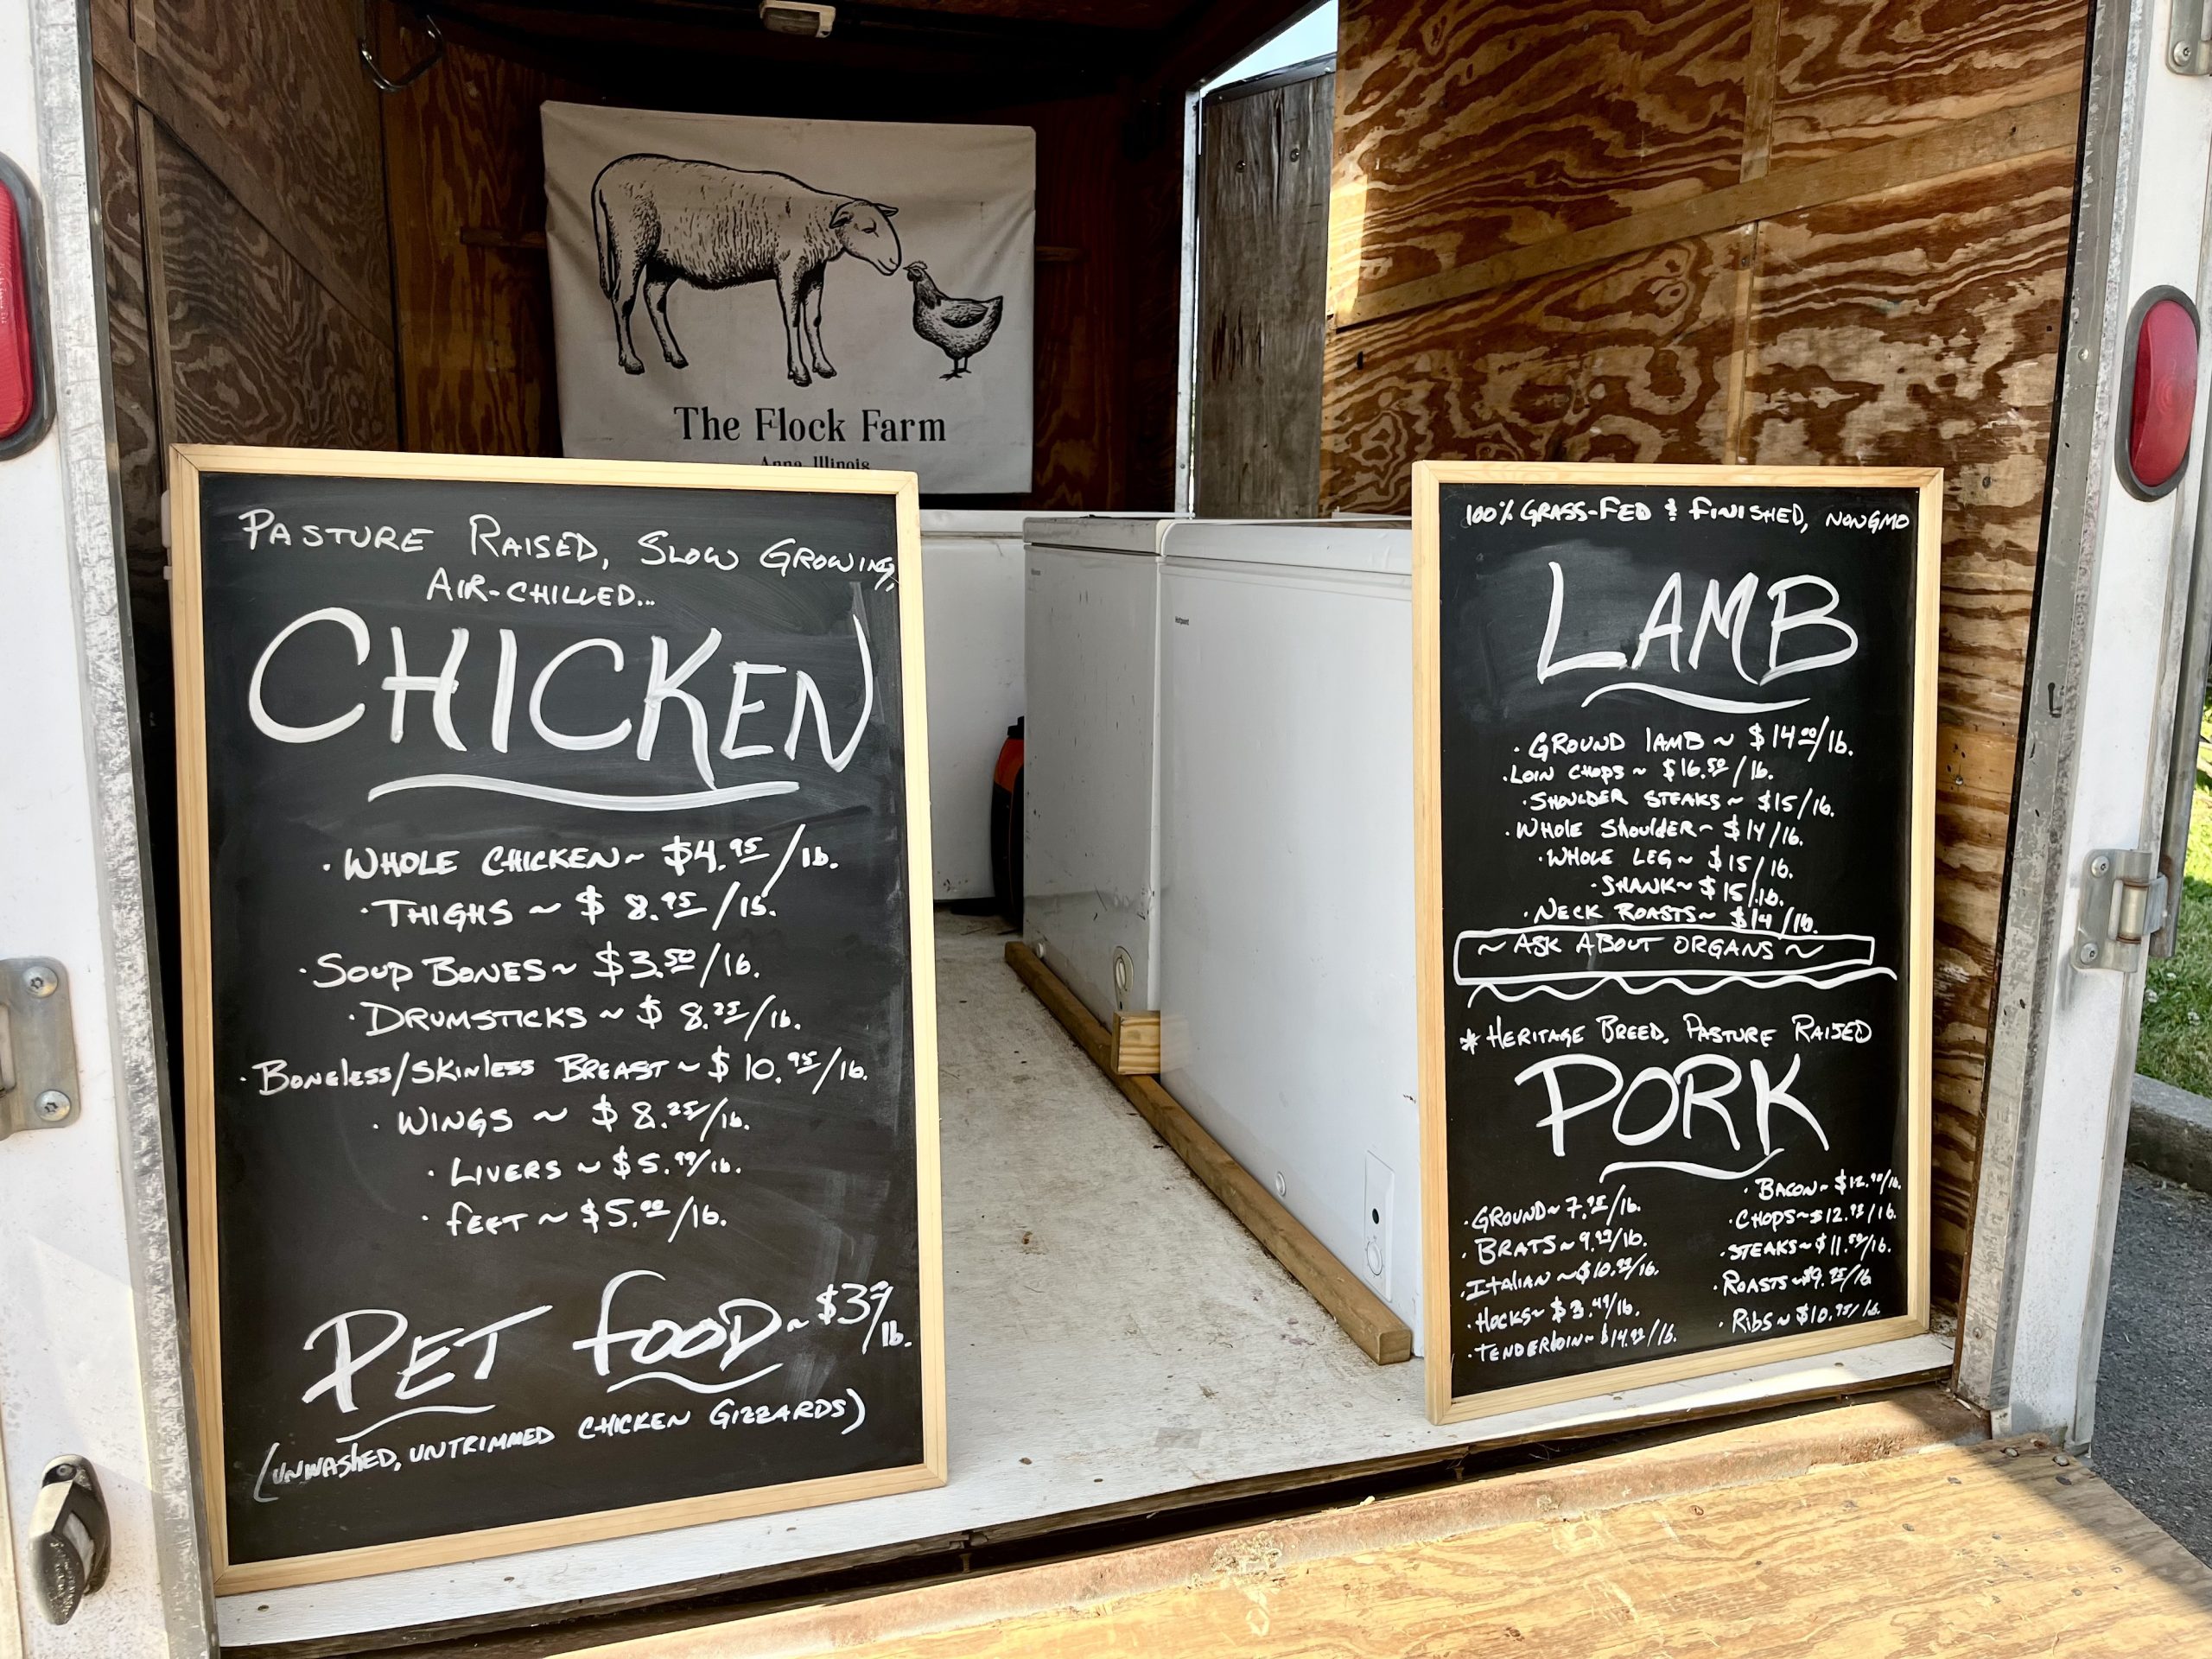 The Flock Farm
Anna, Illinois
PASTURE RAISED, SLOW GROWING,
AIR-CHILLED...
CHICKEN
· WHOLE CHICKEN ~ $4.95/lb.
· THIGHS ~ $8.95/lb.
· SOUP BONES ~ $3.50/lb.
· DRUMSTICKS ~ $8.25/lb.
· BONELESS/SKINLESS BREAST ~ $10.95/lb.
· WINGS ~ $8.25/lb.
· LIVERS ~ $5.99/lb.
· FEET ~ $5.00/lb.
PET FOOD ~ /lb.
(UNWASHED, UNTRIMMED CHICKEN GIZZARDS)
Hotpoint
100% GRASS-FED & FINISHED, NON GMO
LAMB
· GROUND LAMB ~ $14.00/lb.
· LOIN CHOPS ~ $16.50/lb.
· SHOULDER STEAKS ~ $15/lb.
· WHOLE SHOULDER ~ $14/lb.
· WHOLE LEG ~ $15/lb.
· SHANK ~ $15/lb.
· NECK ROASTS ~ $14/lb.
~ ASK ABOUT ORGANS ~
* HERITAGE BREED, PASTURE RAISED
PORK
· GROUND ~ 7.25/lb.
· BRATS ~ /lb.
· ITALIAN ~ /lb.
· HOCKS ~ $3.49/lb.
· TENDERLOIN ~ /lb.
· BACON ~ /lb.
· CHOPS ~ /lb.
· STEAKS ~ /lb.
· ROASTS ~ /lb
· RIBS ~ $10.95/lb.